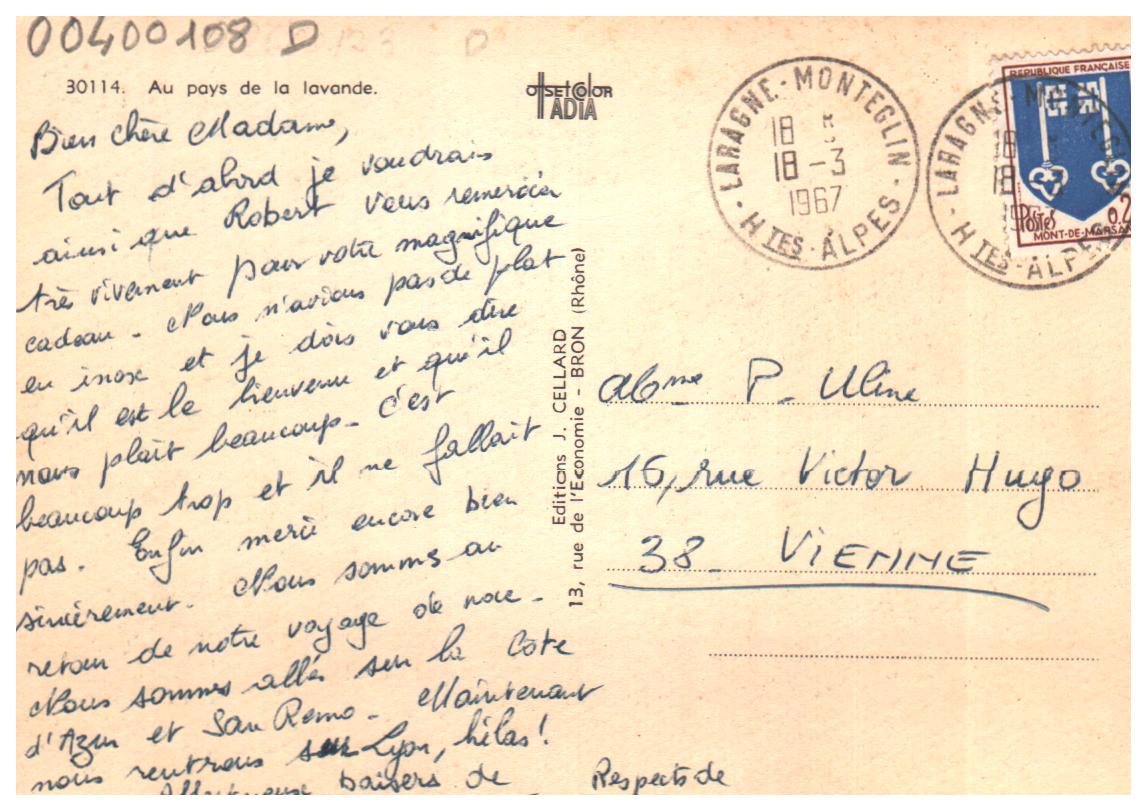 00400108 D
30114. Au pays de la lavande.
OffSETCOLOR
ADIA
Bien chère Madame,
Tout d'abord je voudrais
ainsi que Robert vous remercier
très vivement pour votre magnifique
cadeau - Nous n'avions pas de plat
en inox et je dois vous dire
qu'il est le bienvenu et qu'il
nous plait beaucoup - C'est
beaucoup trop et il ne fallait
pas. Enfin merci encore bien
sincèrement. Nous sommes au
retour de notre voyage de noce -
Nous sommes allés sur la Côte
d'Azur et San Remo - Maintenant
nous rentrons sur Lyon, hélas !
Affectueux baisers de
Respects de
Editions J. CELLARD
13, rue de l'Economie - BRON (Rhône)
LARAGNE-MONTEGLIN
18
18 -3
1967
HTES-ALPES
LARAGNE-MONTEGLIN
18
18
HTES-ALPES
REPUBLIQUE FRANÇAISE
Postes
MONT-DE-MARSAN
Mme P. Uline
16, rue Victor Hugo
38 - VIENNE